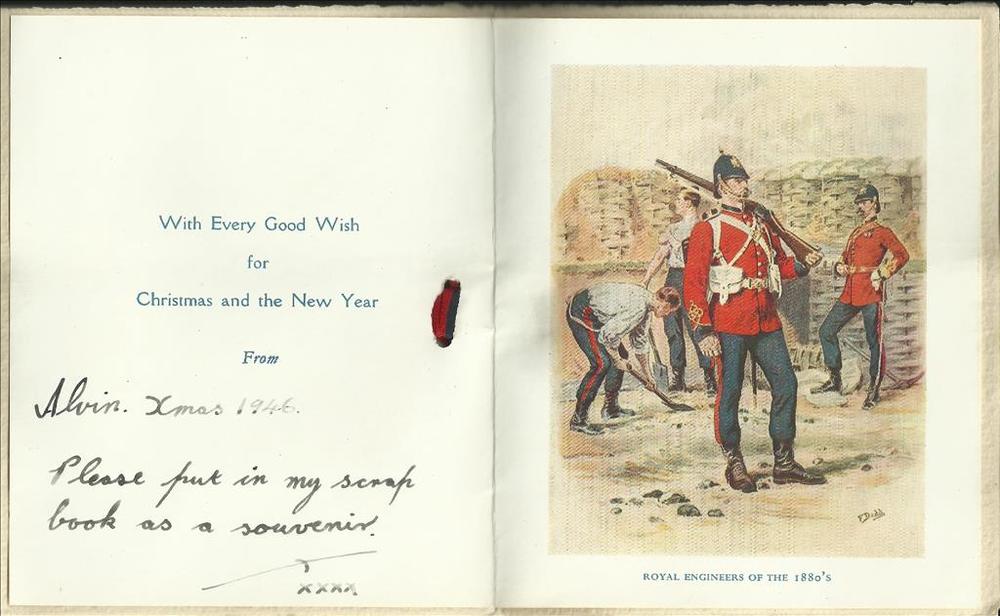 With Every Good Wish
for
Christmas and the New Year
From
Alvin. Xmas 1946.
Please put in my scrap
book as a souvenir.
xxxx
F. Dadd
ROYAL ENGINEERS OF THE 1880'S